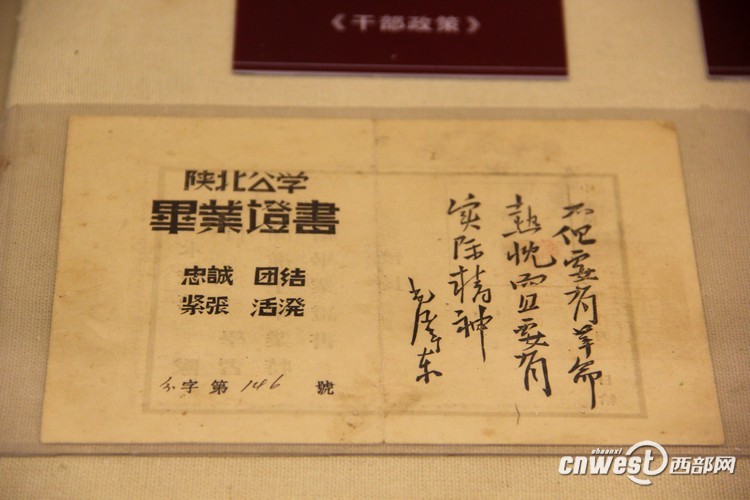 《干部政策》
陕北公学
畢業證書
忠誠 团结
紧張 活潑
分字第146號
不但要有革命
热忱而且要有
实际精神
毛泽东
shaanxi
cnwest西部网